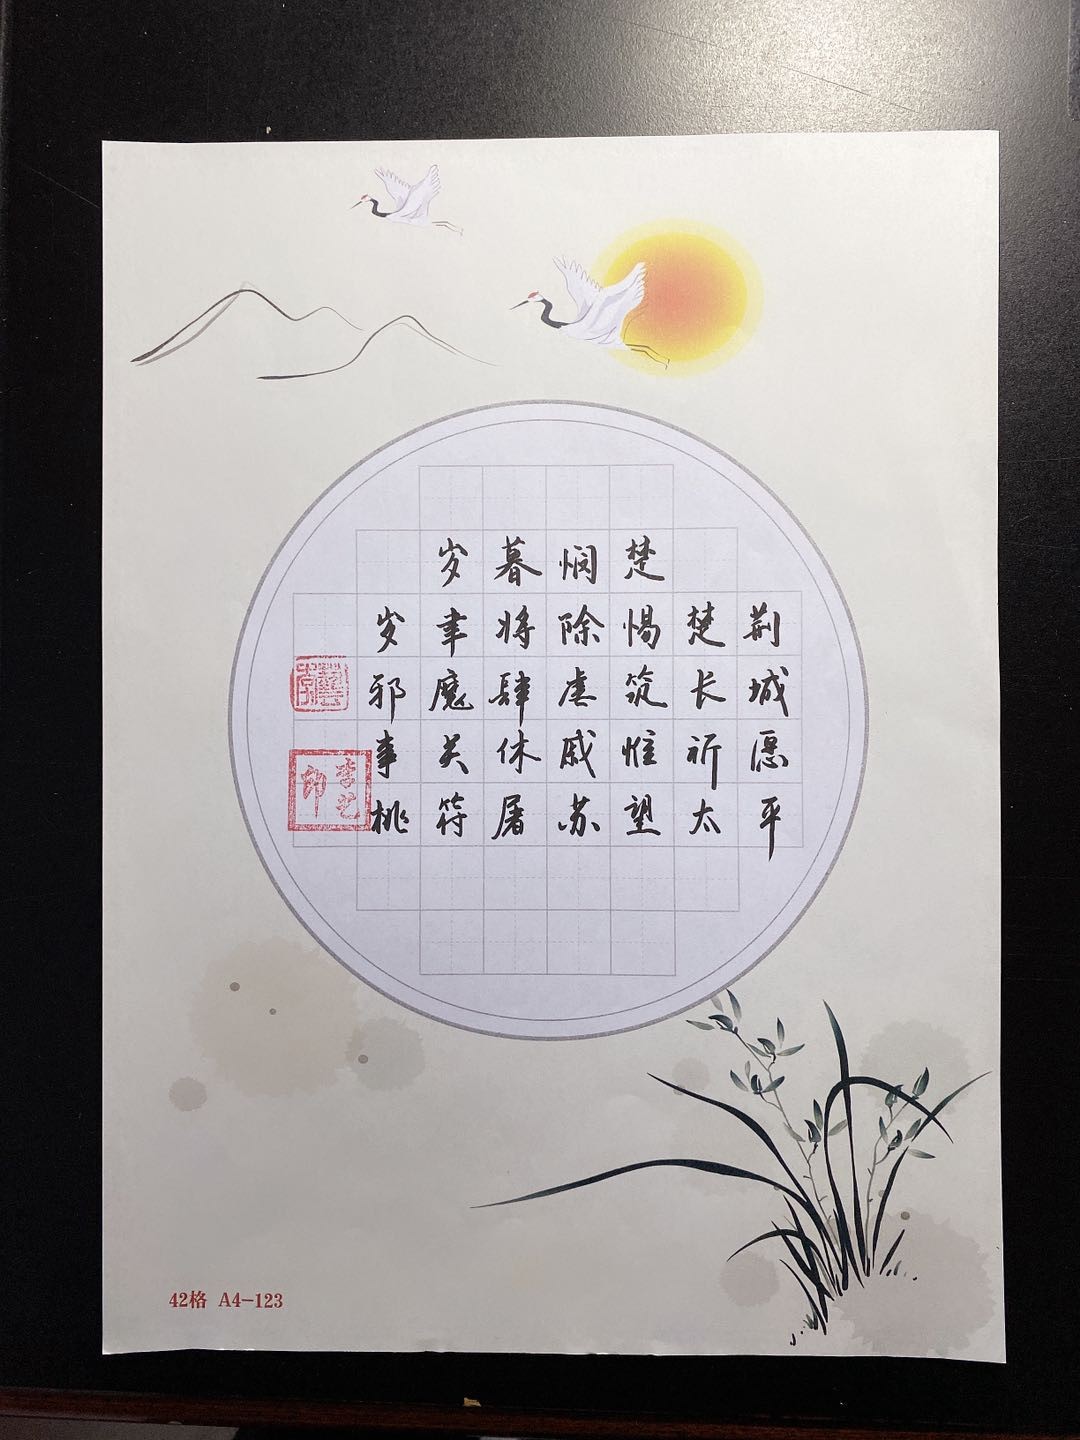 岁暮悯楚
岁聿将除惕楚荆
邪魔肆虐筑长城
事关休戚惟祈愿
桃符屠苏望太平
李艺印
42格 A4-123